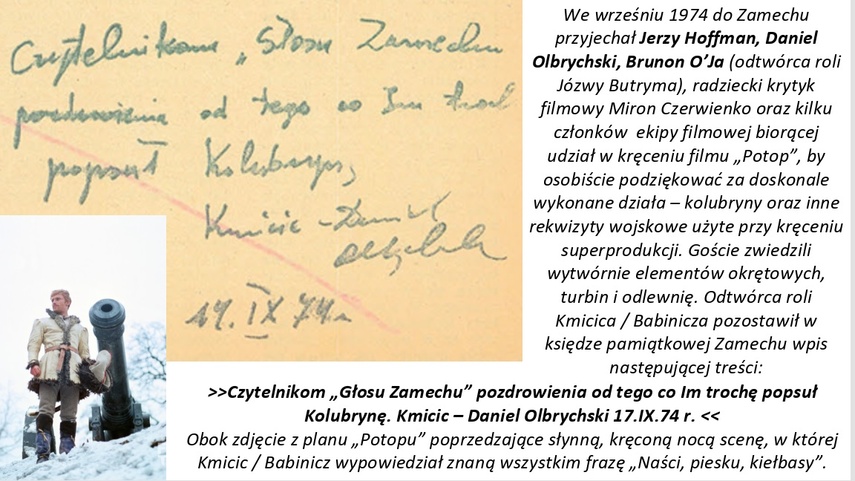 Czytelnikom „Głosu Zamechu
pozdrowienia od tego co Im troch
popsuł Kolubrynę
Kmicic – Daniel
Olbrychski
17. IX 74 r.
We wrześniu 1974 do Zamechu
przyjechał Jerzy Hoffman, Daniel
Olbrychski, Brunon O’Ja (odtwórca roli
Józwy Butryma), radziecki krytyk
filmowy Miron Czerwienko oraz kilku
członków ekipy filmowej biorącej
udział w kręceniu filmu „Potop”, by
osobiście podziękować za doskonale
wykonane działa – kolubryny oraz inne
rekwizyty wojskowe użyte przy kręceniu
superprodukcji. Goście zwiedzili
wytwórnie elementów okrętowych,
turbin i odlewnię. Odtwórca roli
Kmicica / Babinicza pozostawił w
księdze pamiątkowej Zamechu wpis
następującej treści:
>>Czytelnikom „Głosu Zamechu” pozdrowienia od tego co Im trochę popsuł
Kolubrynę. Kmicic – Daniel Olbrychski 17.IX.74 r. <<
Obok zdjęcie z planu „Potopu” poprzedzające słynną, kręconą nocą scenę, w której
Kmicic / Babinicz wypowiedział znaną wszystkim frazę „Naści, piesku, kiełbasy”.